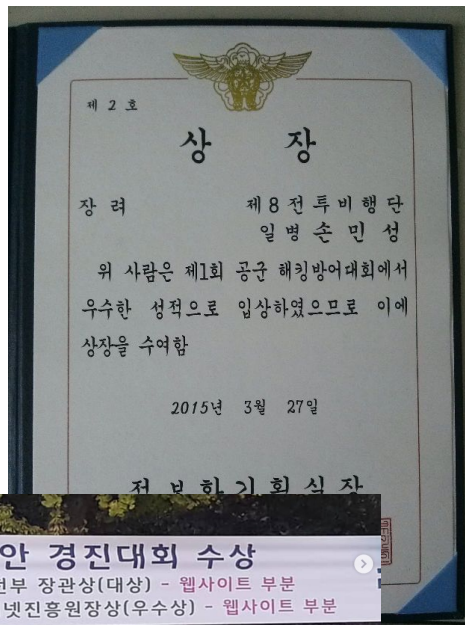 제 2 호
상 장
장 려 제8전투비행단
일병 손민성
위 사람은 제1회 공군 해킹방어대회에서
우수한 성적으로 입상하였으므로 이에
상장을 수여함
2015년 3월 27일
정보화기획실장
안 경진대회 수상
부 장관상(대상) - 웹사이트 부분
넷진흥원장상(우수상) - 웹사이트 부분